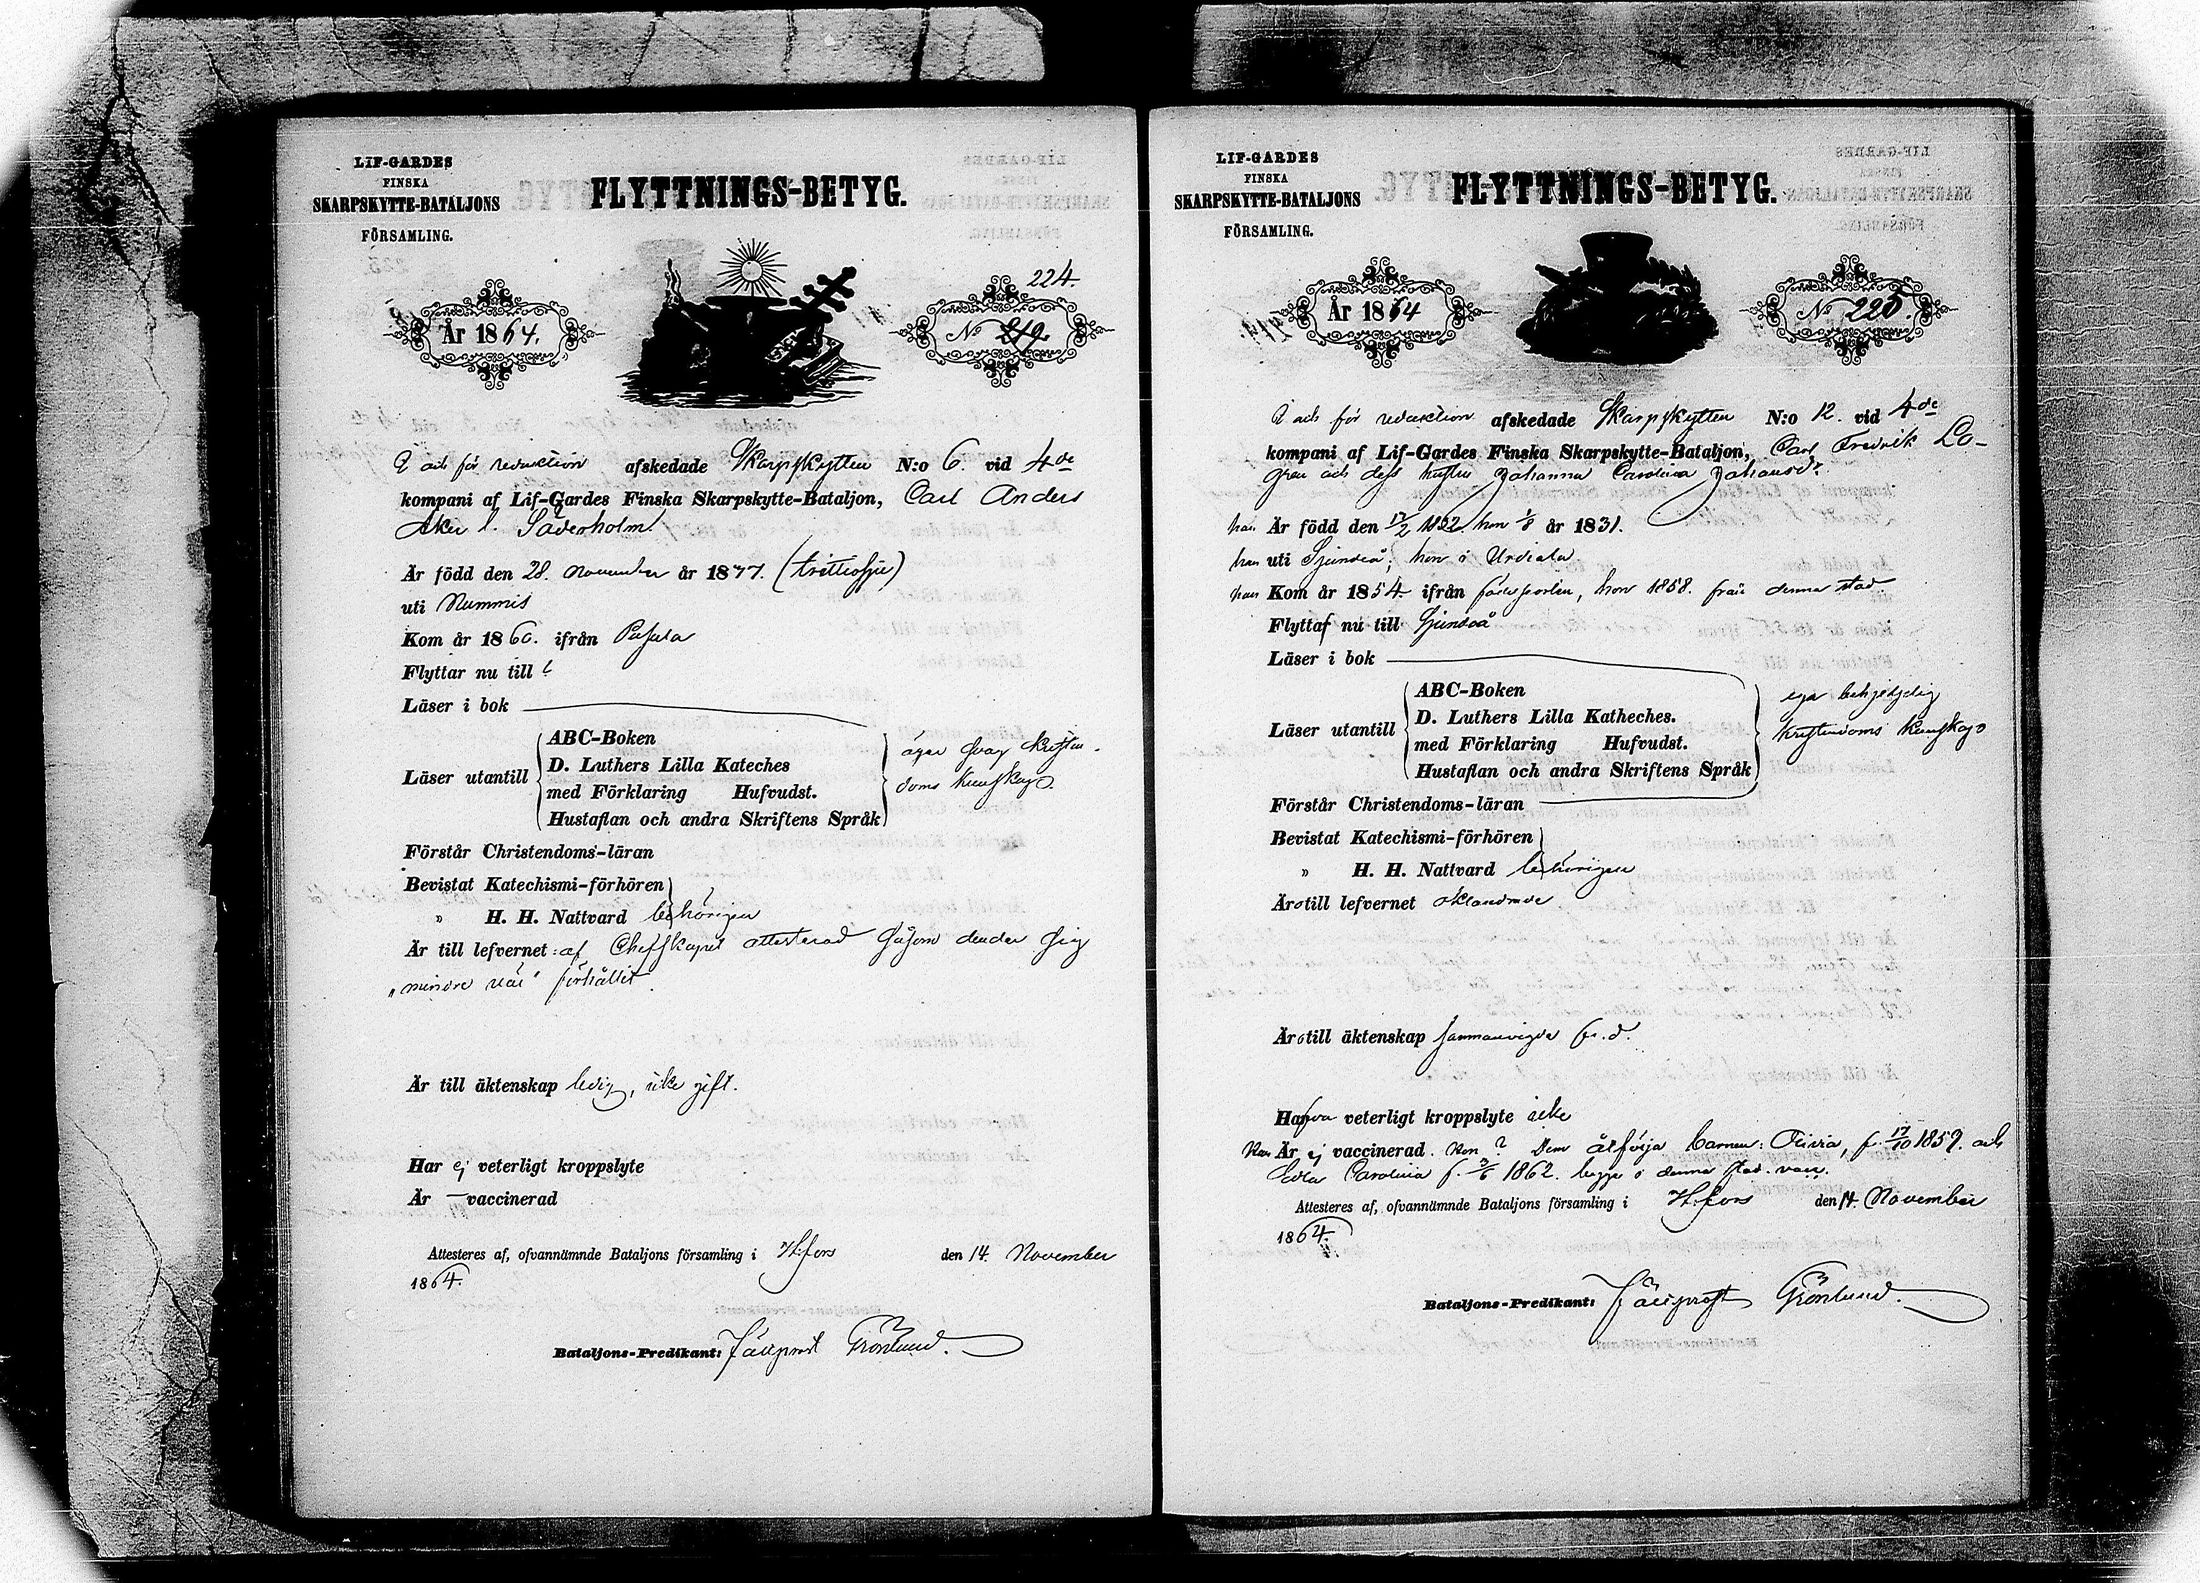 LIF-GARDES
FINSKA
SKARPSKYTTE-BATALJONS
FÖRSAMLING.
FLYTTNINGS-BETYG.
224.
År 1864.
No 219
afskedade Skarpskytten N:o 6. vid 4de
kompani af Lif-Gardes Finska Skarpskytte-Bataljon, Carl Anders
Söderholm
Är född den 28. November år 1837. (trettiosju)
uti Nummis
Kom år 1860. ifrån Pusula
Flyttar nu till
Läser i bok
Läser utantill
ABC-Boken
D. Luthers Lilla Kateches
med Förklaring Hufvudst.
Hustaflan och andra Skriftens Språk
äger svag kristen-
doms kunskap.
Förstår Christendoms-läran
Bevistat Katechismi-förhören
„ H. H. Nattvard behörigen
Är till lefvernet: af Chefskapet attesterad såsom den der sig
„mindre väl" förhållit.
Är till äktenskap ledig, icke gift.
Har ej veterligt kroppslyte
Är — vaccinerad
Attesteres af, ofvannämnde Bataljons församling i H:fors den 14. November
1864.
Bataljons-Predikant: Fältprost Grönlund.
LIF-GARDES
FINSKA
SKARPSKYTTE-BATALJONS
FÖRSAMLING.
FLYTTNINGS-BETYG.
År 1864
No 225.
afskedade Skarpskytten N:o 12. vid 4de
kompani af Lif-Gardes Finska Skarpskytte-Bataljon, Carl Fredrik Lo-
gren och dess hustru Johanna Carolina Johansdr
han Är född den 17/2 1832 hon 1/8 år 1831.
han uti Sjundeå, hon i Urdiala
han Kom år 1854. ifrån hon 1858. från denna stad.
Flytta nu till Sjundeå
Läser i bok
Läser utantill
ABC-Boken
D. Luthers Lilla Katheches.
med Förklaring Hufvudst.
Hustaflan och andra Skriftens Språk
ega behjelplig
kristendoms kunskap
Förstår Christendoms-läran
Bevistat Katechismi-förhören
„ H. H. Nattvard behörigen
Äro till lefvernet oklandrade
Äro till äktenskap sammanvigde
Hafva veterligt kroppslyte icke
Han Är ej vaccinerad. Hon? Dem åtfölja barnen: Olivia, f. 17/10 1859. och
Edla Carolina f. 3/6 1862. begge i denna stad.
Attesteres af, ofvannämnde Bataljons församling i H:fors den 14. November
1864.
Bataljons-Predikant: Fältprost Grönlund.